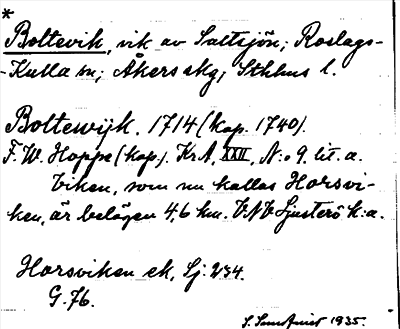 *
Boltevik, vik av Saltsjön; Roslags-
-Kulla sn; Åkers skg; Sthlms l.
Boltewijk. 1714 (kop. 1740).
F. W. Hoppe (kop). KrA, XXII, N:o 9 lit. a.
Viken, som nu kallas Horsvi-
ken, är belägen 4,6 km. VNV Ljusterö k:a.
Horsviken ek. Lj. 234.
G. 76.
S. Sundqvist 1935.